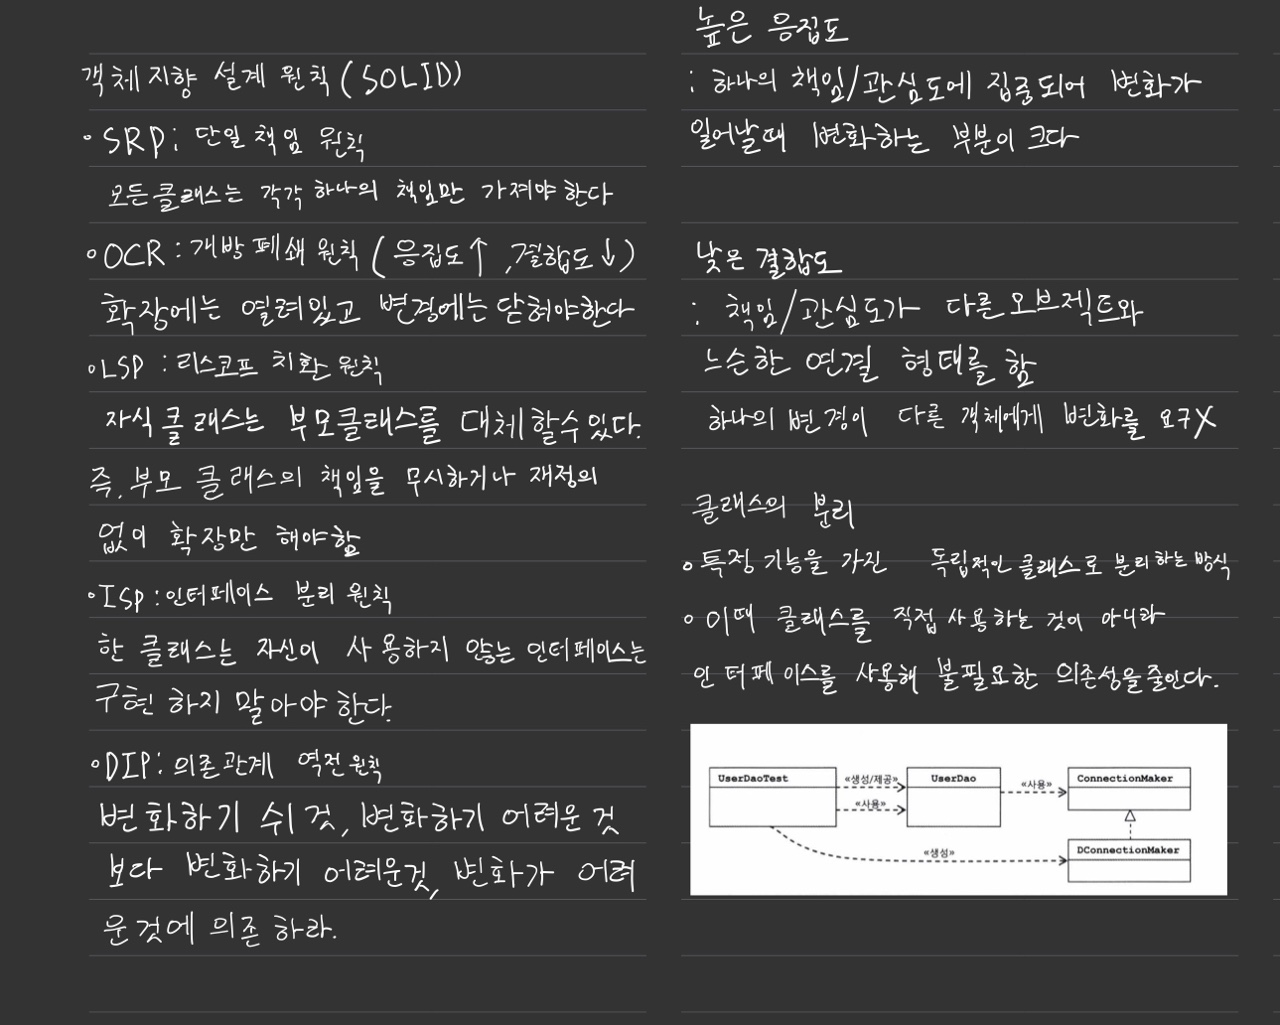 객체지향 설계 원칙 (SOLID)
• SRP: 단일 책임 원칙
모든클래스는 각각 하나의 책임만 가져야 한다
• OCR : 개방 폐쇄 원칙 ( 응집도↑ , 결합도↓)
확장에는 열려있고 변경에는 닫혀야한다
• LSP : 리스코프 치환 원칙
자식 클래스는 부모클래스를 대체할수있다.
즉, 부모 클래스의 책임을 무시하거나 재정의
없이 확장만 해야함
• ISP : 인터페이스 분리 원칙
한 클래스는 자신이 사용하지 않는 인터페이스는
구현 하지 말아야 한다.
• DIP: 의존관계 역전 원칙
변화하기 쉬 것, 변화하기 어려운 것
보다 변화하기 어려운것, 변화가 어려
운것에 의존 하라.
높은 응집도
: 하나의 책임/관심도에 집중되어 변화가
일어날때 변화하는 부분이 크다
낮은 결합도
: 책임/관심도가 다른오브젝트와
느슨한 연결 형태를 함
하나의 변경이 다른 객체에게 변화를 요구X
클래스의 분리
• 특정 기능을 가진 독립적인 클래스로 분리하는 방식
• 이때 클래스를 직접 사용하는 것이 아니라
인터페이스를 사용해 불필요한 의존성을줄인다.
UserDaoTest «생성/제공» UserDao «사용» ConnectionMaker
«사용»
«생성» DConnectionMaker